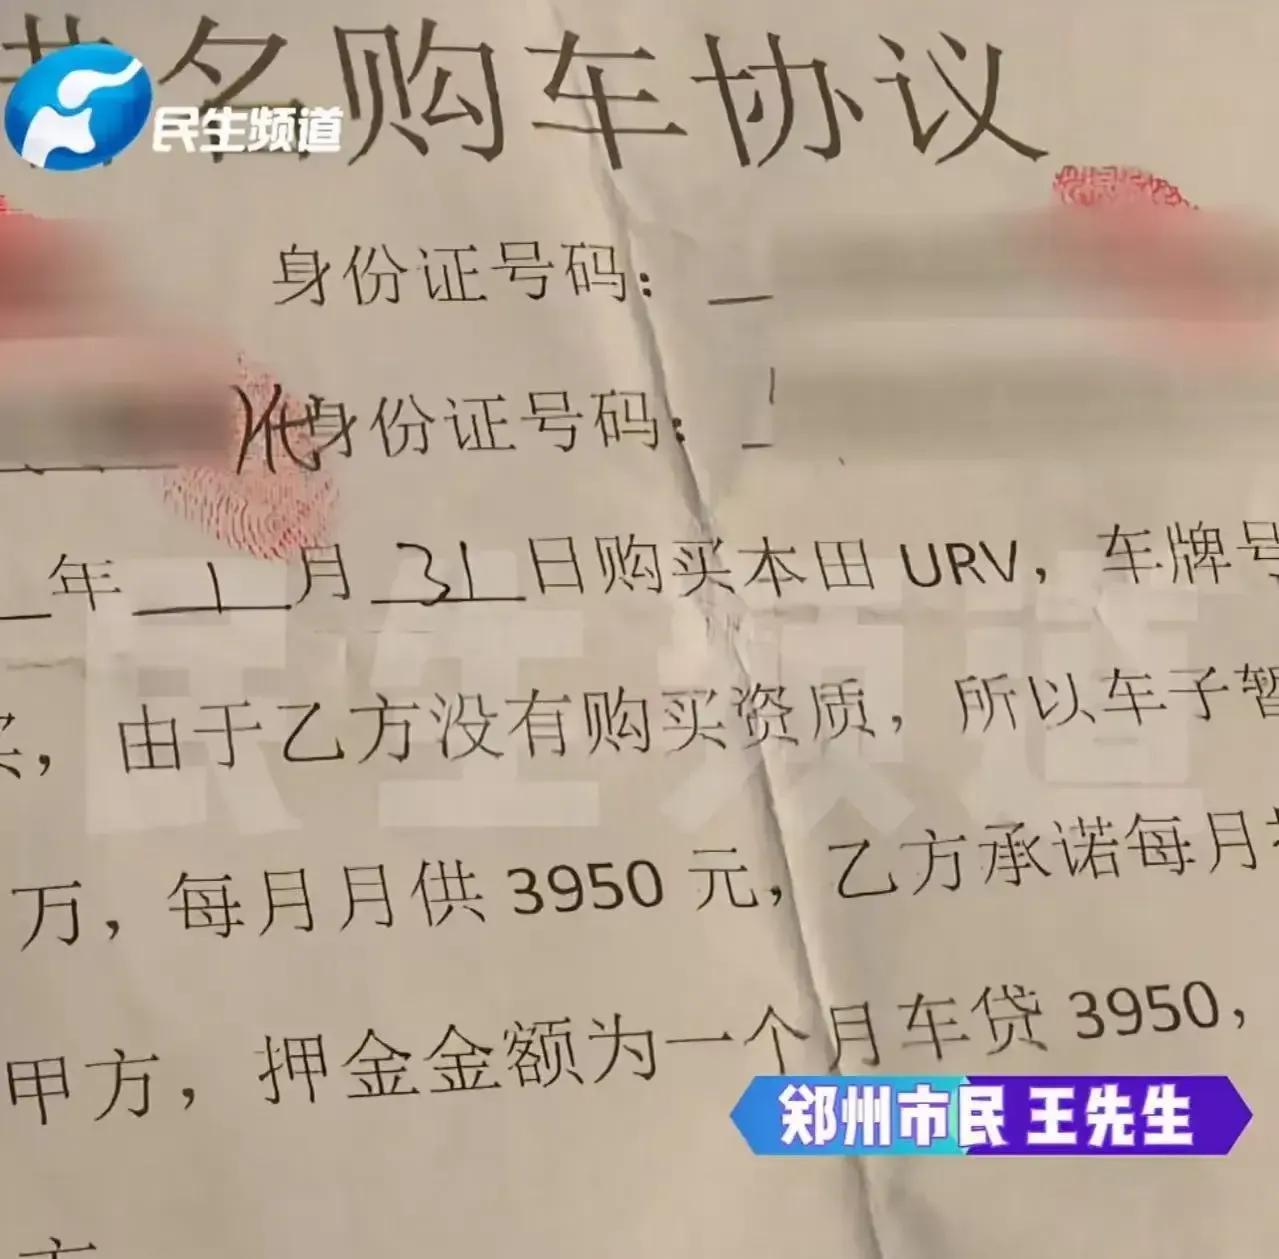 名购车协议
民生频道
身份证号码：
（代）身份证号码：
年 1 月 31 日购买本田 URV，车牌号
，由于乙方没有购买资质，所以车子暂
民生频道
万，每月月供 3950 元，乙方承诺每月
甲方，押金金额为一个月车贷 3950，
郑州市民 王先生